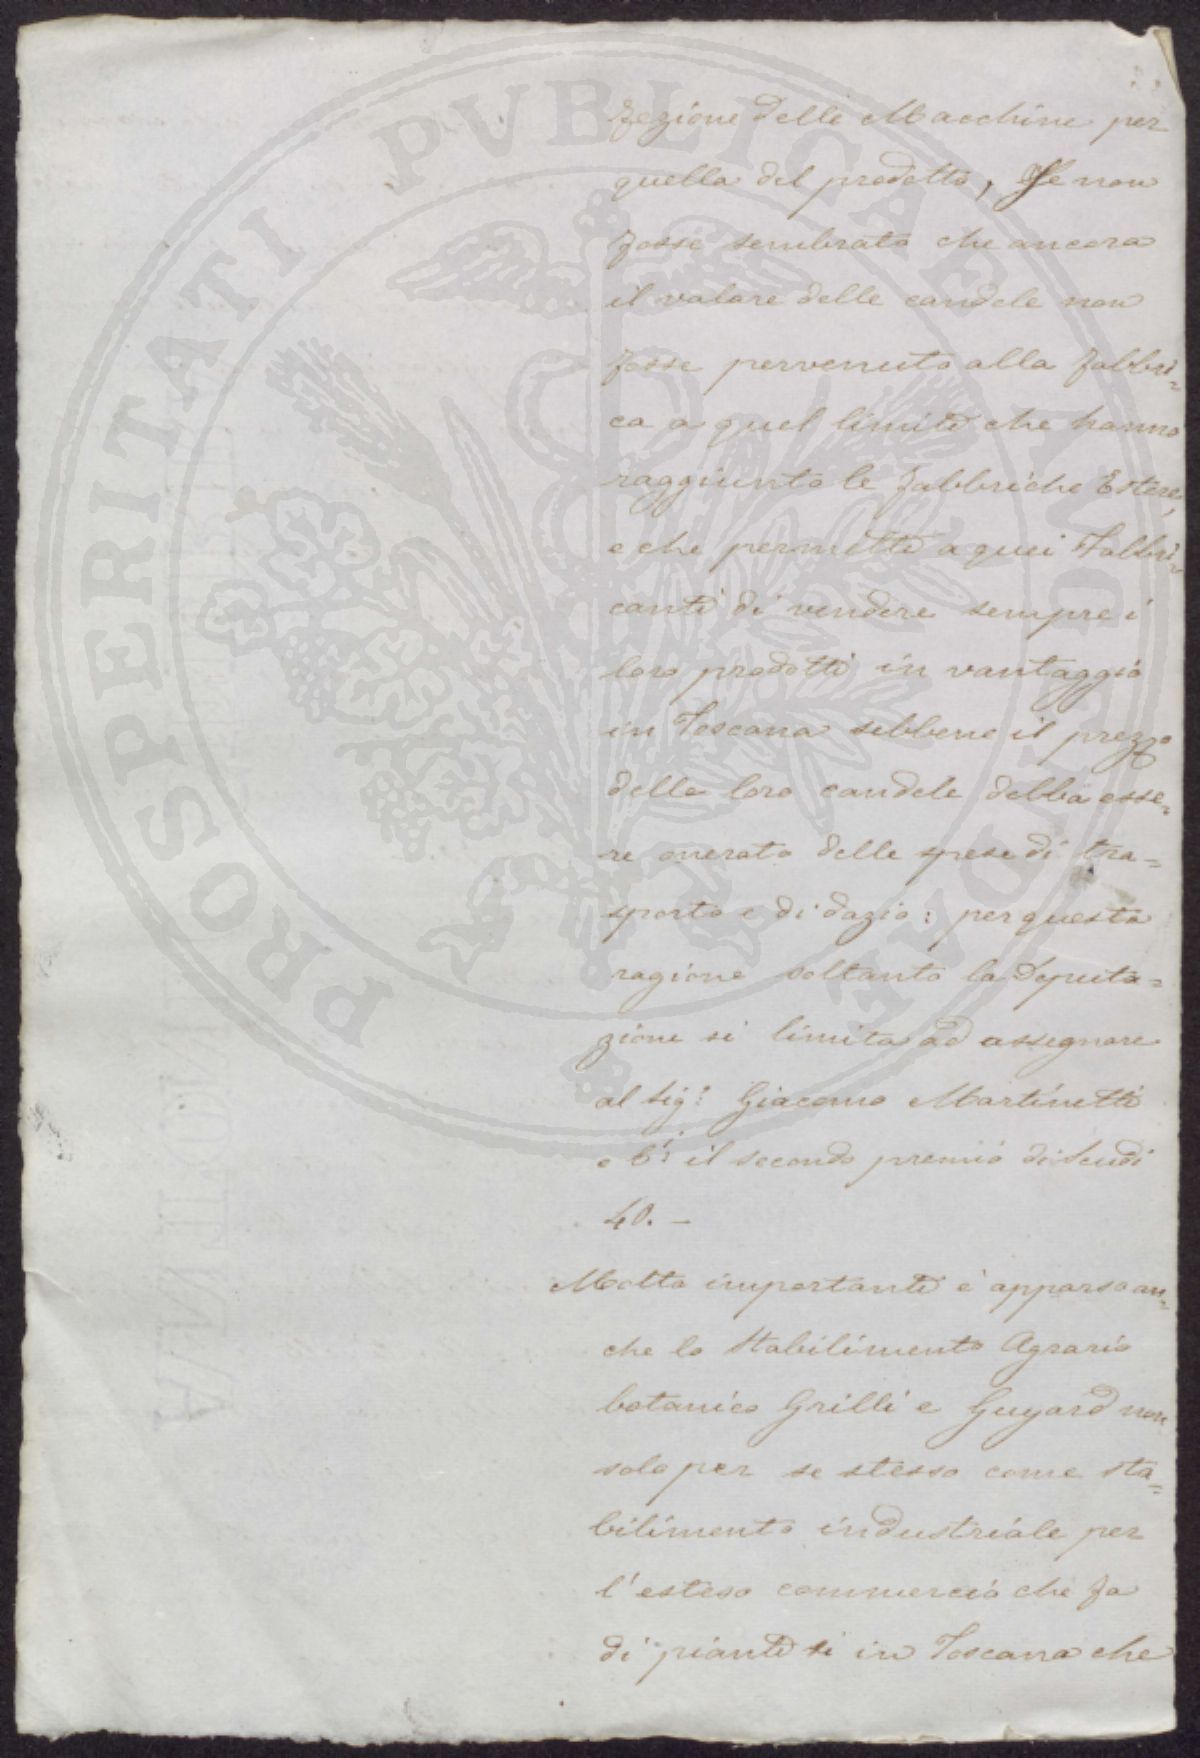 fezione delle Macchine per
quella del prodotto, Se non
fosse sembrato che ancora
il valore delle candele non
fosse pervenuto alla fabbri=
ca a quel limite che hanno
raggiunto le fabbriche Estere,
e che permette a quei Fabbri=
canti di vendere sempre i
loro prodotti in vantaggio
in Toscana sebbene il prezzo
delle loro candele debba esse=
re onerato delle spese di tra=
sporto e di dazio: per questa
ragione soltanto la Deputa=
zione si limita ad assegnare
al Sig.r Giacomo Martinetti
e C.i il secondo premio di Scudi
40. —
Molto importante è apparso an=
che lo Stabilimento Agrario
botanico Grilli e Guyard non
solo per se stesso come sta=
bilimento industriale per
l'esteso commercio che fa
di piante si in Toscana che
PROSPERITATI PVBLICAE AVGENDAE